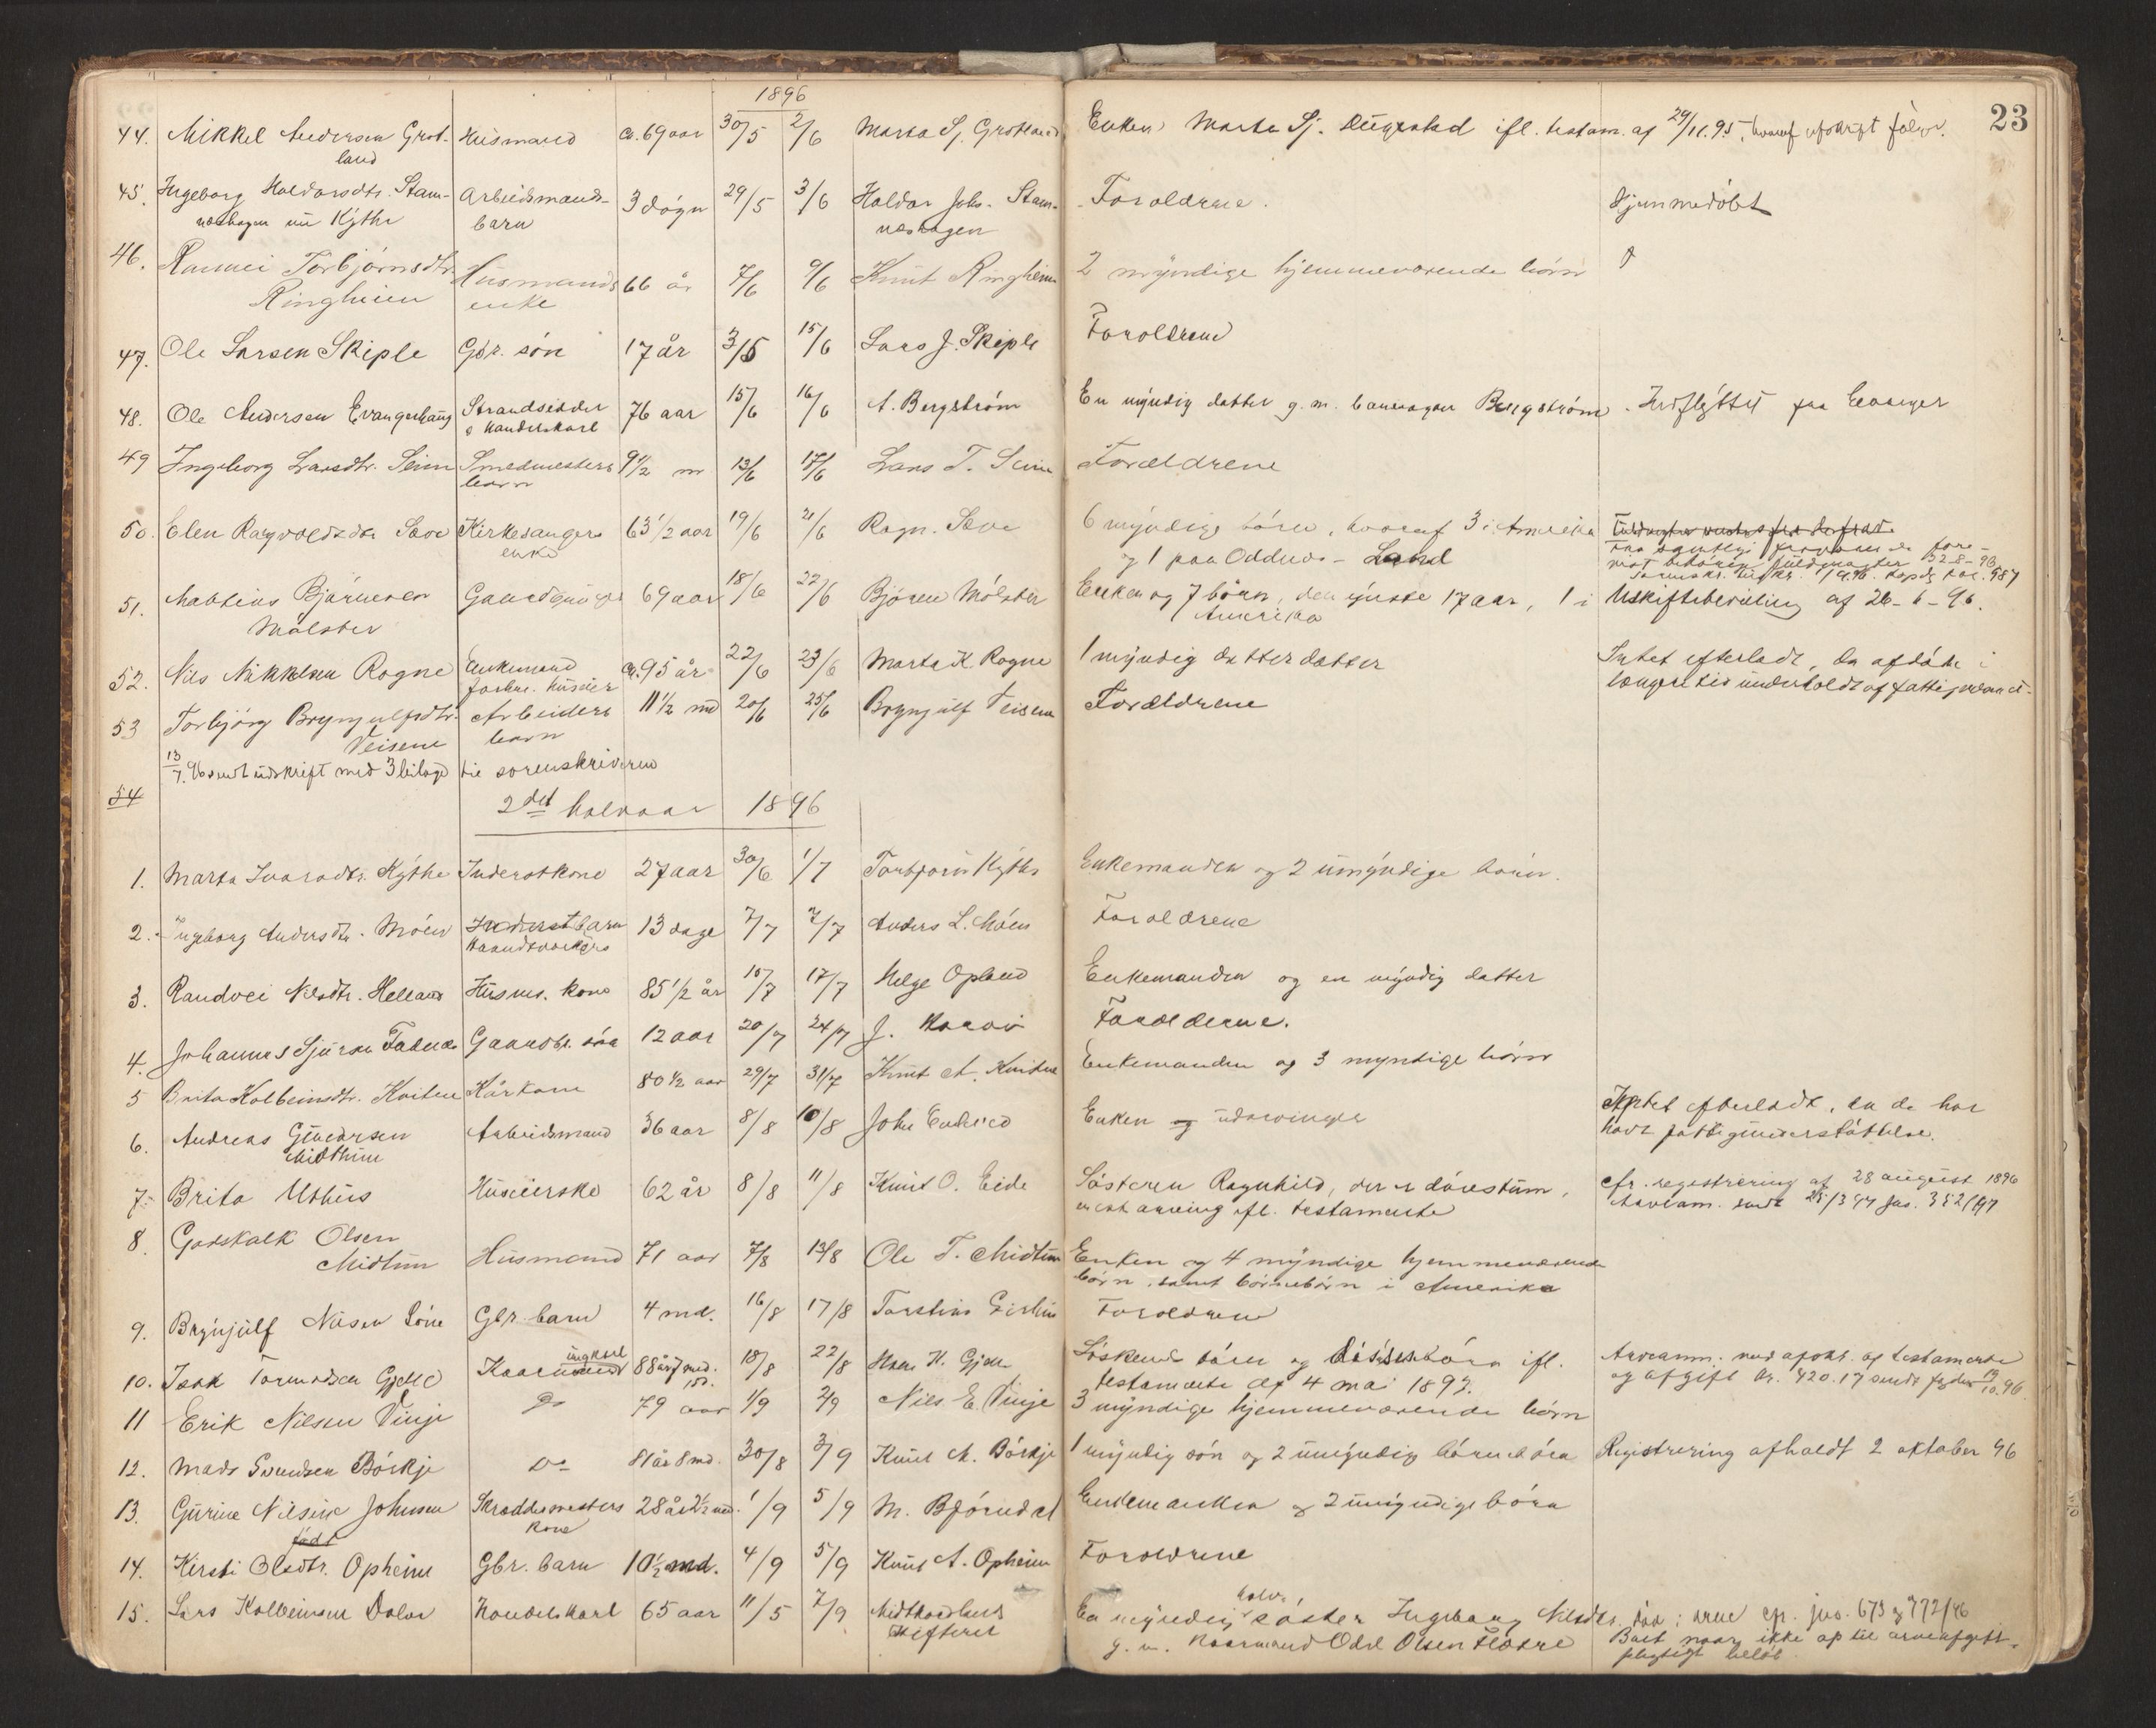 1896
23
44. Mikkel Andersen Grot- Husmand ca. 69 aar 30/5 2/6 Marta Sj. Grotland Enken Marta Sj. ifl. testam. af 29/11.95, hvoraf afskrift følger.
land
45. Ingeborg Haldorsdtr. Stam- Arbeidsmands- 3 døgn 29/5 3/6 Haldor Johs. Stam- Forældrene. Hjemmedøbt
næshagen nu Kythe barn næshagen
46. Torbjørnsdtr. Husmands 66 år 7/6 9/6 Knut Ringheim 2 myndige hjemmeværende børn
Ringheim enke
47. Ole Larsen Skiple Gbr. søn 17 år 3/5 15/6 Lars J. Skiple Forældrene
48. Ole Andersen Evangerhaug Strandsidder 76 aar 15/6 16/6 A. Bergström En myndig datter g. m. Bergström. Indflyttet fra Evanger
& Handelskarl
49 Ingeborg Larsdtr. Seim Smedmesters 9 1/2 m 13/6 17/6 Lars T. Seim Forældrene
barn
50. Elen Ragvaldsdtr. Sæve Kirkesangers 63 1/2 aar 19/6 21/6 Ragn. Sæve 6 myndige børn, hvoraf 3 i Amerika
enke og 1 paa Oddnes - Land
51. Mathias Bjørnesen Gaardbruger 69 aar 18/6 22/6 Bjørne Mølster Enken og 7 børn, den yngste 17 aar, 1 i Uskiftebevilling af 26-6-96.
Mølster Amerika
52. Nils Mikkelsen Rogne Enkemand ca. 95 år 22/6 23/6 Marta K. Rogne 1 myndig datterdatter Intet efterladt, da afdøde i
forhv. husmr længere tid underholdt af fattigvæsenet.
53 Torbjørg Brynjulfsdtr. Arbeiders 11 1/2 md 20/6 25/6 Brynjulf Veisene Forældrene
Veisene barn
13/7.96 sendt udskrift med 3 bilage til sorenskriveren
54
2det halvaar 1896
1. Marta Ivarsdtr. Kythe Inderstkone 27 aar 30/6 1/7 Torbjørn Kythe Enkemanden og 2 umyndige børn.
2. Ingeborg Andersdtr. Møen Inderstbarn 13 dage 7/7 7/7 Anders L. Møen Forældrene
Haandværkers
3. Randvei Nilsdtr. Helland Husms. kone 85 1/2 år 10/7 17/7 Helge Opland Enkemanden og en myndig datter
4. Johannes Sjursen Gaardbr. søn 12 aar 20/7 24/7 J. Forældrene.
5 Brita Kolbeinsdtr. Kvitne Kårkone 80 1/2 aar 29/7 31/7 Knut A. Kvitne Enkemanden og 3 myndige børn
6. Andreas Arbeidsmand 36 aar 8/8 10/8 John Enken og udarvinger Intet efterladt, da de har
Midthun havt fattigunderstøttelse.
7. Brita Uthus Husmerske 62 år 8/8 11/8 Knut O. Eide Søsteren Ragnhild, der er døvestum, cfr. registrering af 28 august 1896
eneste arving ifl. testamente
8. Godskalk Olsen
Midtun Husmand 71 aar 7/8 13/8 Ole T. Midtun Enken og 4 myndige hjemmeværende
børn, samt børnebørn i Amerika
9. Brynjulf Nilsen Lône Gbr. barn 4 md. 16/8 17/8 Torstein Forældrene
10. Isak Tormodsen Gjelle ungkarl 88 år 7 md. 18/8 22/8 Hans H. Gjelle Søskende børn og ifl. Arveanm. med afskr. af testamente
testamente af 4 mai 1893. og afgift kr. 420.17 sendt 13/10.96
11 Erik Nilsen Vinje Do 79 aar 1/9 2/9 Nils E. Vinje 3 myndige hjemmeværende børn
12. Mads Svendsen Børkje Do 81 år 8 md. 30/8 3/9 Knut M. Børkje 1 myndig søn og 2 umyndig børnebørn Registrering afholdt 2 oktober 96
13. Gurine Nilsine Johnsen Skræddermesters 28 år 2 1/2 md. 1/9 5/9 M. Bjørndal Enkemanden og 2 umyndige børn
født kone
14. Kersti Olsdtr. Opheim Gbr. barn 10 1/2 md. 4/9 5/9 Knut A. Opheim Forældrene
15. Lars Kolbeinsen Dolve Handelskarl 65 aar 11/5 7/9 Midthordlens En myndig halv. søster Ingeborg Nilsdtr. cfr. jno. 673 & 772/96
skifteret g. m. Kaarmand Odd Olsen Flatre Boet naar ikke op til arveafgifts-
pligtigt beløb.